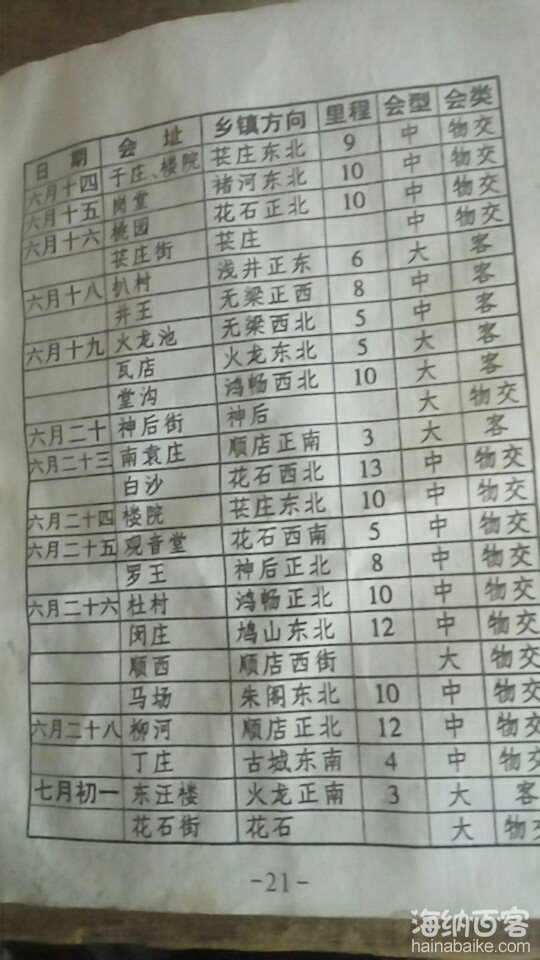 日期 会址 乡镇方向 里程 会型 会类
六月十四 于庄、楼院 苌庄东北 9 中 物交
六月十五 岗堂 褚河东北 10 中 物交
六月十六 桃园 花石正北 10 中 物交
苌庄街 苌庄 中 物交
六月十八 扒村 浅井正东 6 大 客
井王 无梁正西 8 中 物交
六月十九 火龙池 无梁西北 5 中 物交
瓦店 火龙东北 5 大 客
堂沟 鸿畅西北 10 大 客
六月二十 神后街 神后 大 物交
六月二十三 南袁庄 顺店正南 3 大 客
白沙 花石西北 13 中 物交
六月二十四 楼院 苌庄东北 10 中 物交
六月二十五 观音堂 花石西南 5 中 物交
罗王 神后正北 8 中 物交
六月二十六 杜村 鸿畅正北 10 中 物交
闵庄 鸠山东北 12 中 物交
顺西 顺店西街 大 物交
马场 朱阁东北 10 中 物交
六月二十八 柳河 顺店正北 12 中 物交
丁庄 古城东南 4 中 物交
七月初一 东汪楼 火龙正南 3 大 客
花石街 花石 大 物交
-21-
海纳百客
hainabaike.com